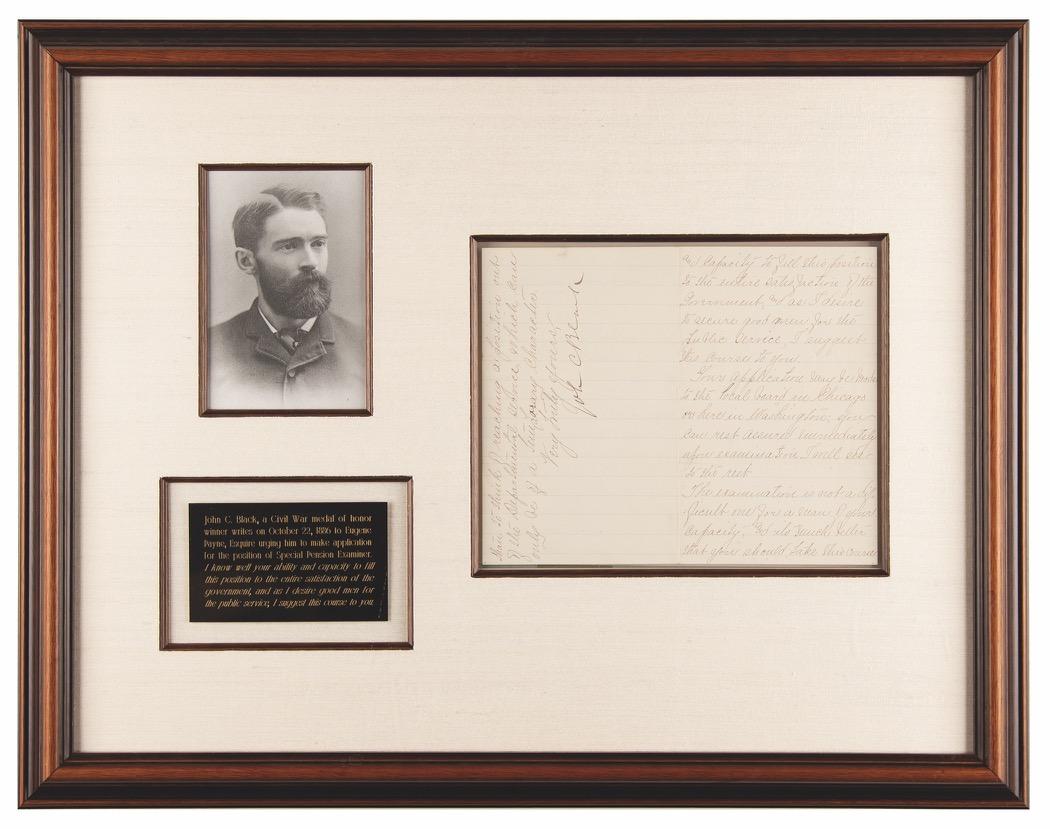 John C. Black, a Civil War medal of honor
winner writes on October 22, 1886 to Eugene
Payne, Esquire urging him to make application
for the position of Special Pension Examiner.
I know well your ability and capacity to fill
this position to the entire satisfaction of the
government, and as I desire good men for
the public service, I suggest this course to you
than to think of reaching a position out
of the Departmental service, which can
only be of a temporary character
Very truly yours,
John C Black
& Capacity to fill this position
to the entire satisfaction of the
Government, & as I desire
to secure good men for the
Public Service, I suggest
this course to you.
Your application may be made
to the local board in Chicago
or here in Washington; you
can rest assured immediately
upon examination I will see
to the rest
The examination is not a dif
ficult one for a man of your
Capacity, & its much better
that you should take this course